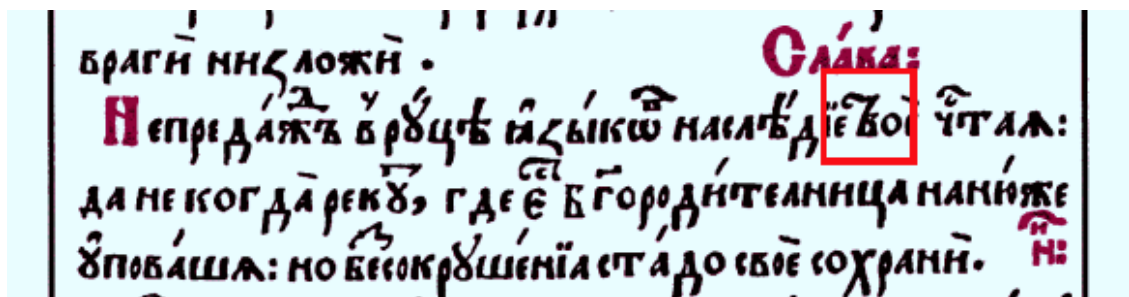 враги̑ низложѝ . Сла́ва:
Непреда́жⷣъ в̾рꙋ́цѣ ꙗ҆зы́кѡⷡ҇ наслѣ́дїе ⷮ҇воѐ чⷭ҇таѧ:
да не когда̀ рекꙋⷮ, где є҆ⷭ҇ бг҃ороди́телница наню́же
ꙋ҆пова́шѧ: но беⷥсокрꙋше́нїа ста́до своѐ сохранѝ. Иⷩ҇: